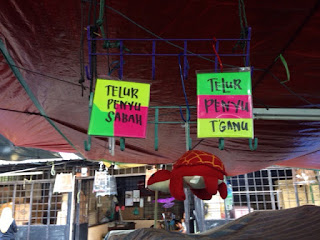 TELUR
PENYU
SABAH
TELUR
PENYU
T'GANU